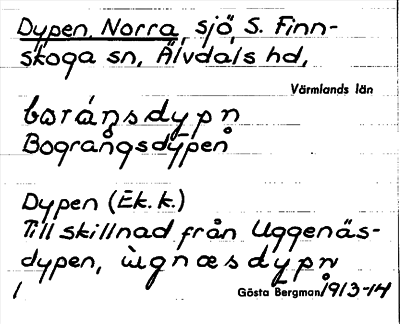 Dypen, Norra, sjö, S. Finn-
skoga sn, Älvdals hd,
Värmlands län
boránsdypn
Bogrångsdypen
Dypen (Ek. k.)
Till skillnad från Uggenäs-
dypen, ùgnæsdypn
1
Gösta Bergman 1913-14